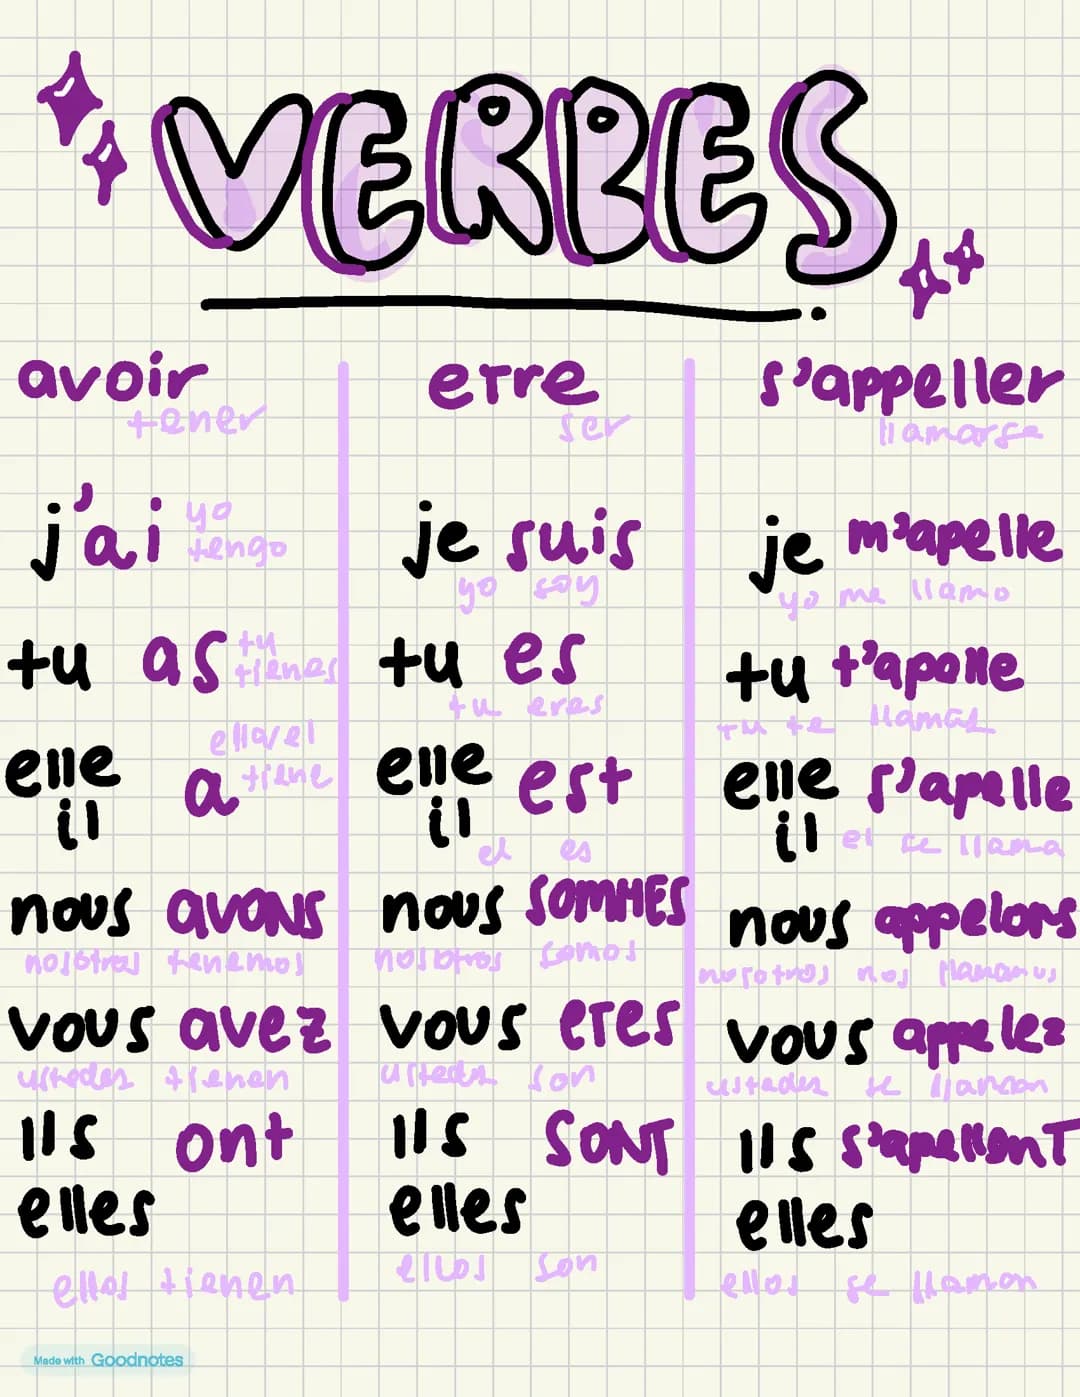 VERBES
avoir
tener
j'ai yo tengo
tu as tu tienes
elle il a ella/el tiene
nous avons
nosotros tenemos
vous avez
ustedes tienen
ils elles ont
ellos tienen
etre
ser
je suis
yo soy
tu es
tu eres
elle il est
el es
nous sommes
nosotros somos
vous etes
ustedes son
ils elles sont
ellos son
s'appeller
llamarse
je m'apelle
yo me llamo
tu t'apelle
tu te llamas
elle il s'apelle
el se llama
nous appelons
nosotros nos llamamos
vous appelez
ustedes se llaman
ils elles s'apellent
ellos se llaman
Made with Goodnotes